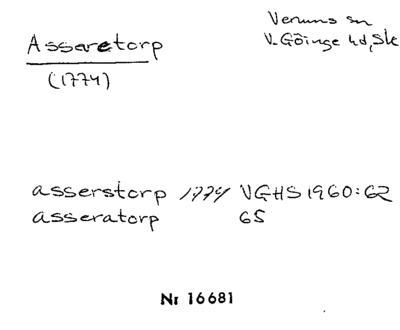 Asseretorp
(1774)
Verums sn
V. Göinge hd, Sk
asserstorp 1774 VGHS 1960:62
asseratorp 65
Nr 16681